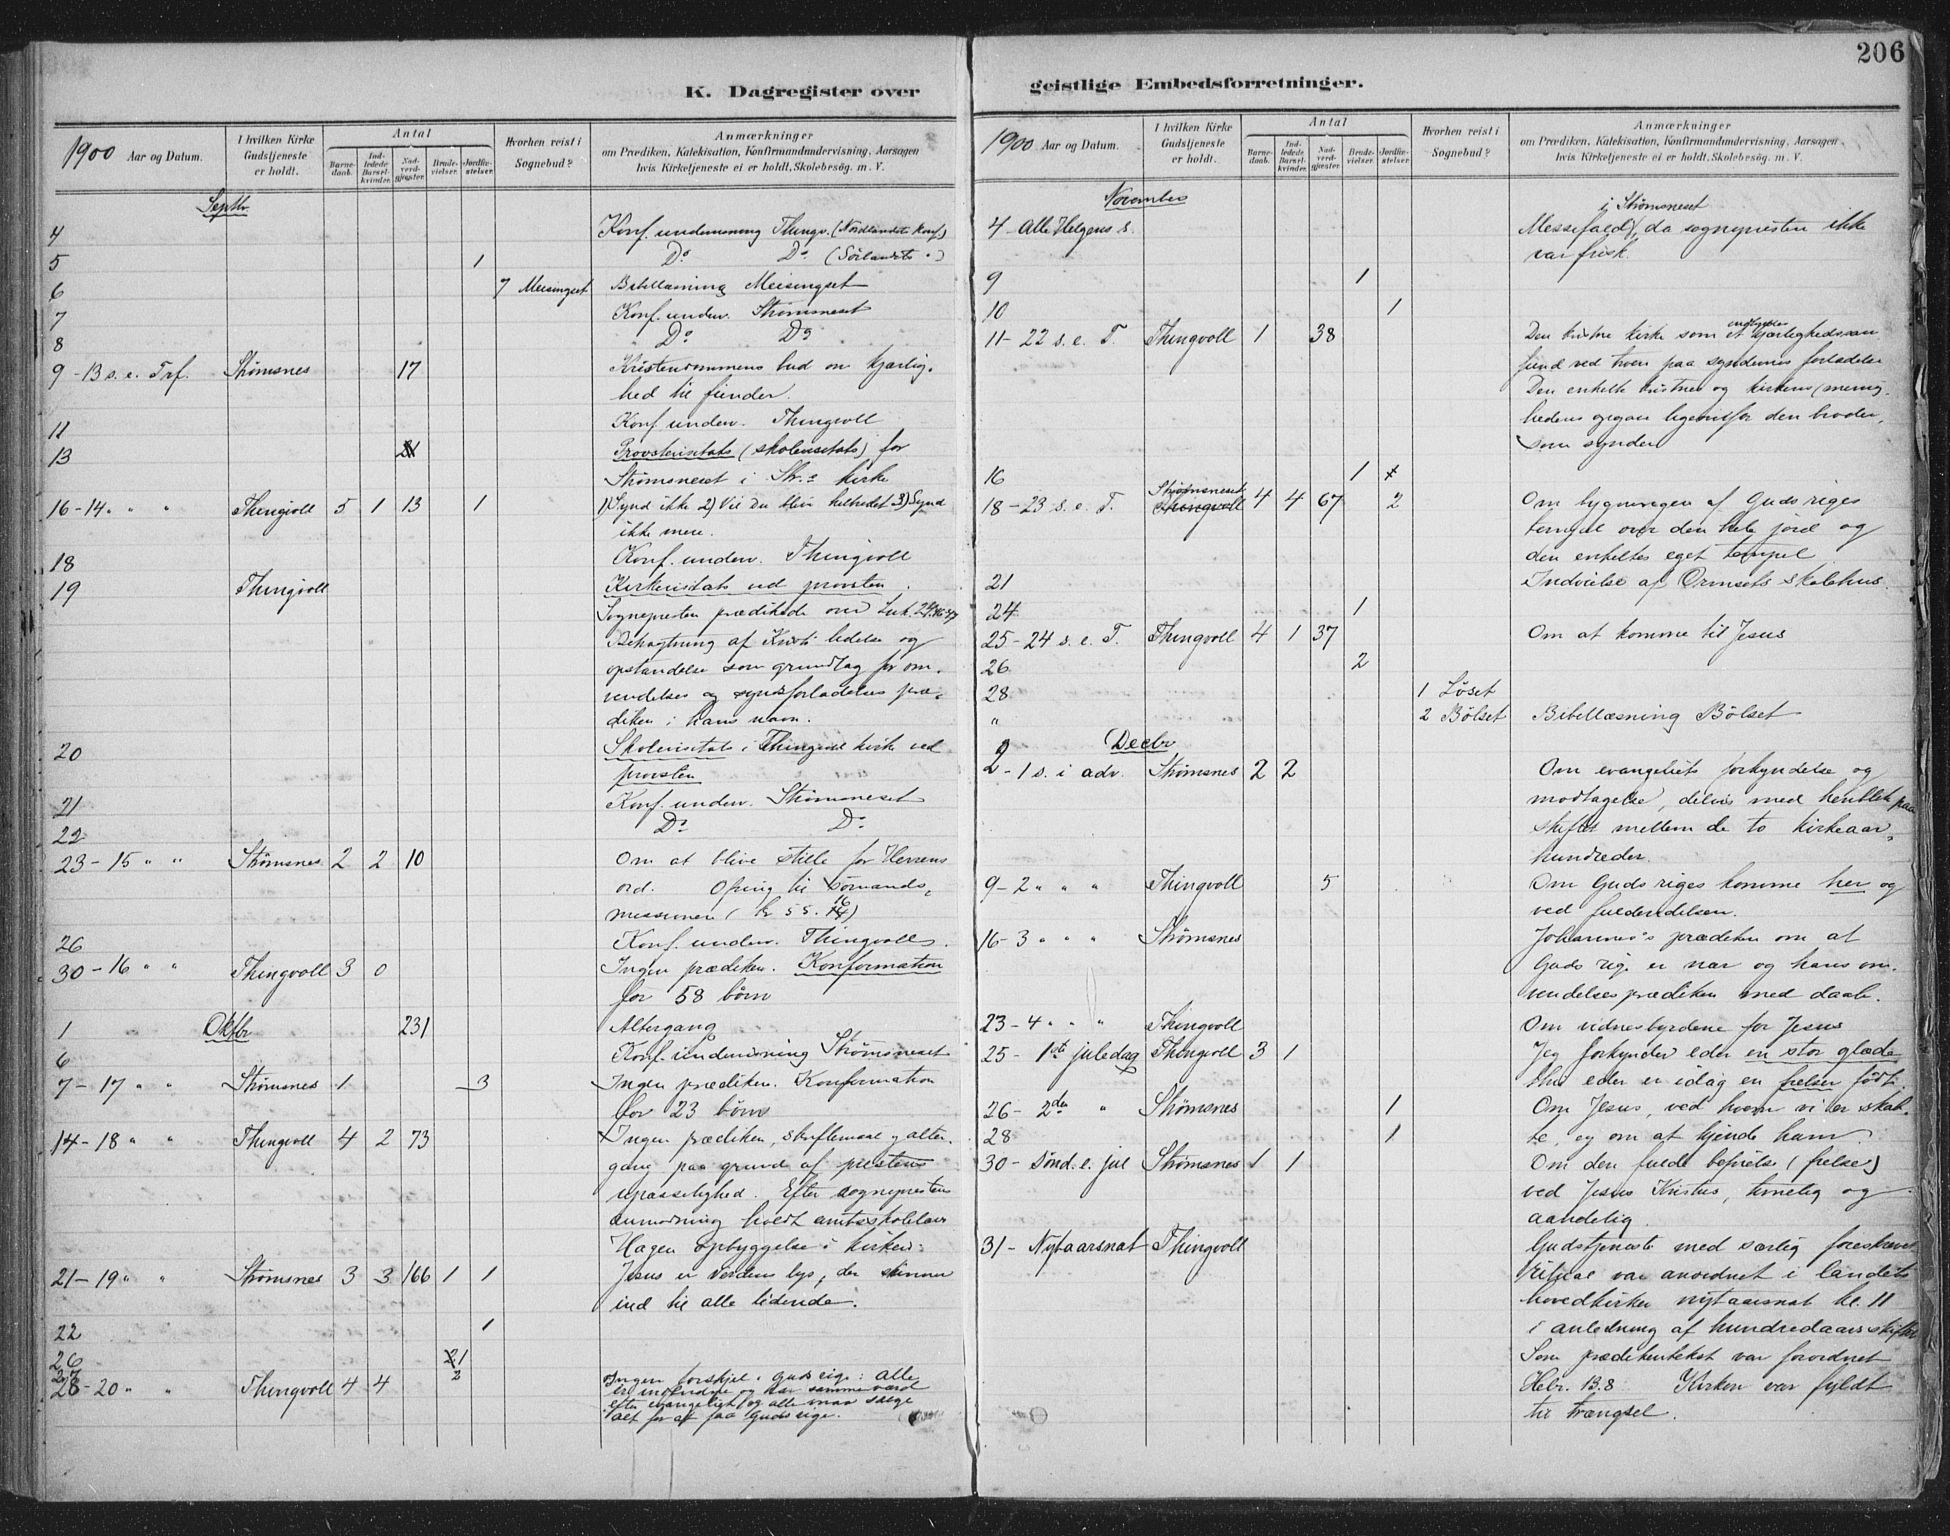 206
K. Dagregister over
1900 Aar og Datum.
I hvilken Kirke Gudstjeneste er holdt.
Antal
Barne-daab.
Ind-ledede Barsel-kvinder.
Nad-verd-gjester.
Brude-vielser.
Jordfæ-stelser.
Hvorhen reist i Sognebud?
Anmærkninger
om Prædiken, Katekisation, Konfirmandundervisning, Aarsagen
hvis Kirketjeneste ei er holdt, Skolebesög. m. V.
Septbr
4 Konf. undervisning Thingv. (Nordlandets Konf.)
5 1 Do Do (Sørlandets " )
6 7 Meisingset Bibellæsning Meisingset
7 Konf. underv. Strømsneset
8 Do Do
9 - 13 s. e. Trf. Strømsnes 17 Kristendommens bud om kjærlig-
hed til fiender.
11 Konf. underv. Thingvoll
13 Provstevisitats (skolevisitats) for
Strømsneset i Str.s kirke
16 - 14 " " " Thingvoll 5 1 13 1 1) Synd ikke 2) Vil Du blive helbredet 3) Synd
ikke mere.
18 Konf. underv. Thingvoll
19 Thingvoll Kirkevisitats ved provsten.
Sognepresten prædikede over Luk. 24,46-47
Betragtning af Kristi lidelse og
opstandelse som grundlag for om-
vendelses og syndsforladelses præ-
diken i hans navn.
20 Skolevisitats i Thingvoll kirke ved
provsten
21 Konf. underv. Strømsneset
22 Do Do
23 - 15 " " Strømsnes 2 2 10 Om at blive stille for Herrens
ord. Ofring til Sømands-
missionen (kr 55.16)
26 Konf. underv. Thingvoll.
30 - 16 " " Thingvoll 3 0 Ingen prædiken. Konformation
for 58 børn
1 Oktbr 231 Altergang
6 Konf. undervisning Strømsneset
7 - 17 " " Strømsnes 1 3 Ingen prædiken. Konformation
for 23 børn
14 - 18 " " Thingvoll 4 2 73 Ingen prædiken, skriftemaal & alter-
gang paa grund af prestens
upasselighed. Efter sogneprestens
anmodning holdt amtsskolelærer
Hagen opbyggelse i kirken:
21 - 19 " " Strømsnes 3 3 166 1 1 Jesus er verdens lys, der skinner
ind til alle lidende.
22 1
26 1
27 2
28 - 20 " " Thingvoll 4 4 Ingen forskjel i Guds rige: alle
er indbudne og har samme værd
efter evangeliet, og alle maa sælge
alt for at faa Guds rige.
geistlige Embedsforretninger.
1900 Aar og Datum.
I hvilken Kirke Gudstjeneste er holdt.
Antal
Barne-daab.
Ind-ledede Barsel-kvinder.
Nad-verd-gjester.
Brude-vielser.
Jordfæ-stelser.
Hvorhen reist i Sognebud?
Anmærkninger
om Prædiken, Katekisation, Konfirmandundervisning, Aarsagen
hvis Kirketjeneste ei er holdt, Skolebesög. m. V.
November
i Strømsneset
4 - Alle Helgens s. Messefald, da sognepresten ikke
var frisk.
9 1
10 1
11 - 22 s. e. T. Thingvoll 1 38 Den kristne kirke som et kjærlighedssam
fund ved troen paa syndernes forladelse
Den enkelte kristnes og kirkens (menig-
hedens) ligeoverfor den broder,
som synder
16 1
18 - 23 s. e. T. Strømsneset Thingvoll 4 4 67 2 Om bygningen af Guds riges
tempel over den hele jord og
den enkeltes eget tempel
21 Indvielse af Ormsets skolehus.
24 1
25 - 24 s. e. T. Thingvoll 4 1 37 Om at komme til Jesus
26 2
28 1 Løset
" 2 Bölset Bibellæsning Bölset
Decbr
2 - 1 s. i adv. Strømsnes 2 2 Om evangeliets forkyndelse og
modtagelse, delvis med henblik paa
skiftet mellem de to kirkeaar-
hundreder.
9 - 2 " " " Thingvoll 5 Om Guds riges komme her og
ved fuldendelsen.
16 - 3 " " " Strømsnes Johannes's prædiken om at
Guds rige er nær og hans om-
vendelsesprædiken med daab.
23 - 4 " " " Thingvoll Om vidnesbyrdene for Jesus
25 - 1ste juledag Thingvoll 3 1 Jeg forkynder eder en stor glæde
thi eder er idag en frelser født.
26 - 2den " Strømsnes 1 Om Jesus, ved hvem vi er skab-
28 1 te, og om at kjende ham.
30 - Sønd. e. jul Strømsnes 1 1 Om den fulde befrielse (frelse)
ved Jesus Kristus, timelig og
aandelig.
31 - Nytaarsnat Thingvoll Gudstjeneste med særlig foreskrevet
ritual var anordnet i landets
hovedkirker nytaarsnat kl. 11
i anledning af hundredaarsskiftet
Som prædikentekst var forordnet
Hebr. 13.8 Kirken var fyldt
til trængsel.